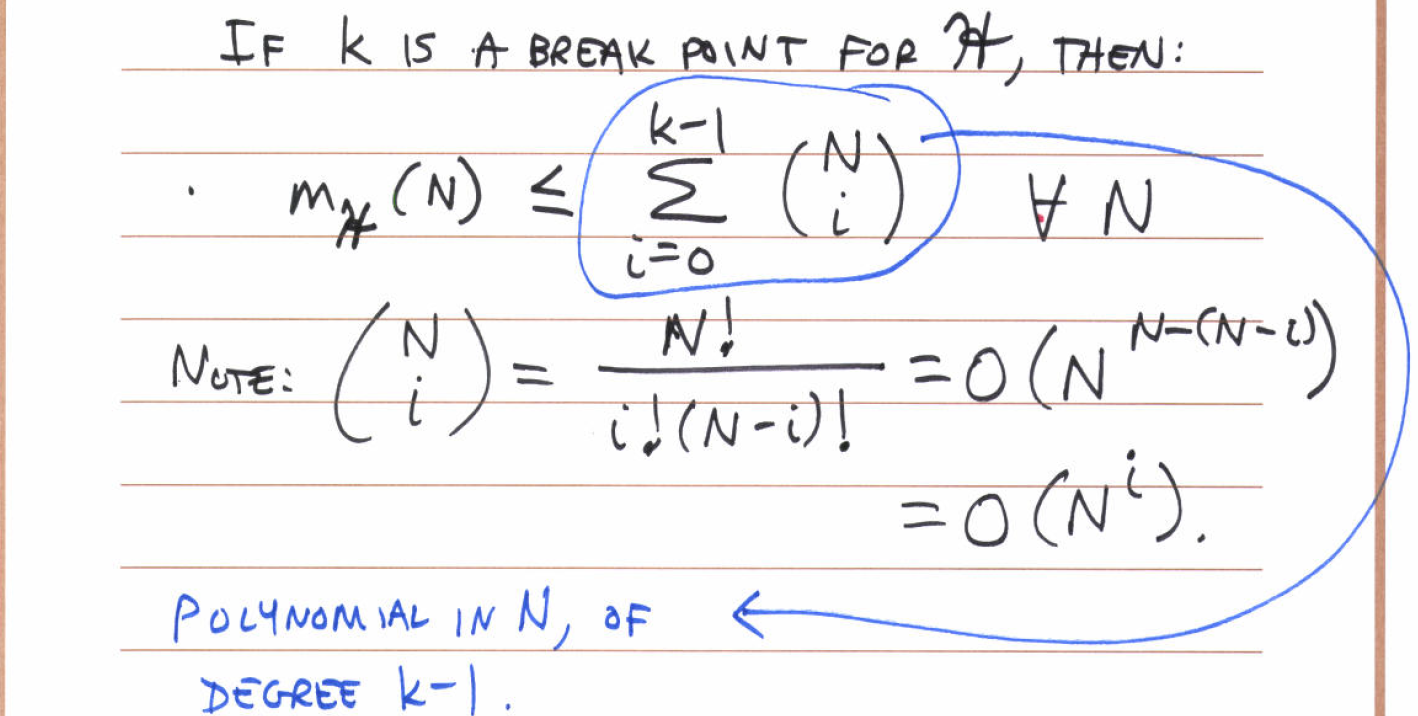 IF k IS A BREAK POINT FOR H, THEN:
m_H(N) ≤ ∑_{i=0}^{k-1} (N i) ∀ N
NOTE: (N i) = N! / i!(N-i)! = O(N^{N-(N-i)})
= O(N^i).
POLYNOMIAL IN N, OF
DEGREE k-1.